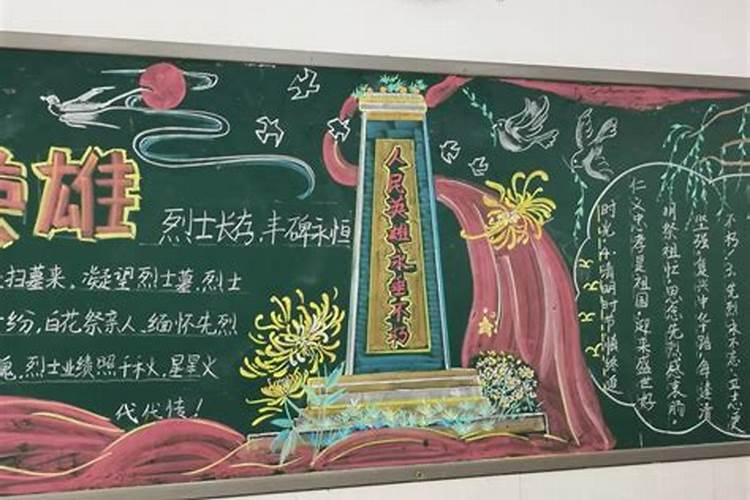 英雄
烈士长存,丰碑永恒
扫墓来,凝望烈士墓.烈士
纷,白花祭亲人,缅怀先烈
烈士业绩照千秋,星星火
代代传!
人民英雄永垂不朽
不朽!
先烈永不忘.立志
坚强,复兴中华路.每逢清
明祭祖忙.思念先烈感衷肠,
仁义忠孝是祖国,迎来盛世好
时光.清明时节情